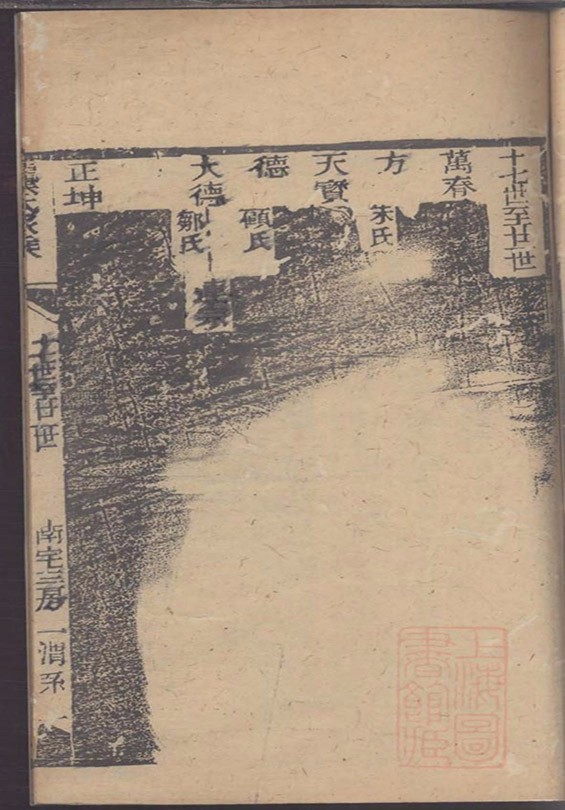 十七世至廿一世
萬春
方
朱氏
天寶
德
顧氏
大德
鄒氏
正坤
十七世至廿一世
南宅三房
一渭系
上海圖
書館藏